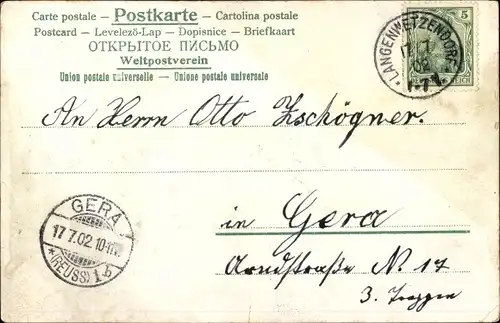 Carte postale – Postkarte – Cartolina postale
Postcard – Levelező-Lap – Dopisnice – Briefkaart
ОТКРЫТОЕ ПИСЬМО
Weltpostverein
Union postale universelle – Unione postale universale
LANGENWETZENDORF
17 7
02
7-8 V.
5
REICH
An Herrn Otto Zschögner.
GERA
17 7.02. 10-11V.
*(REUSS) 1 b
in Gera
Arndtstraße N. 17
3. Treppen